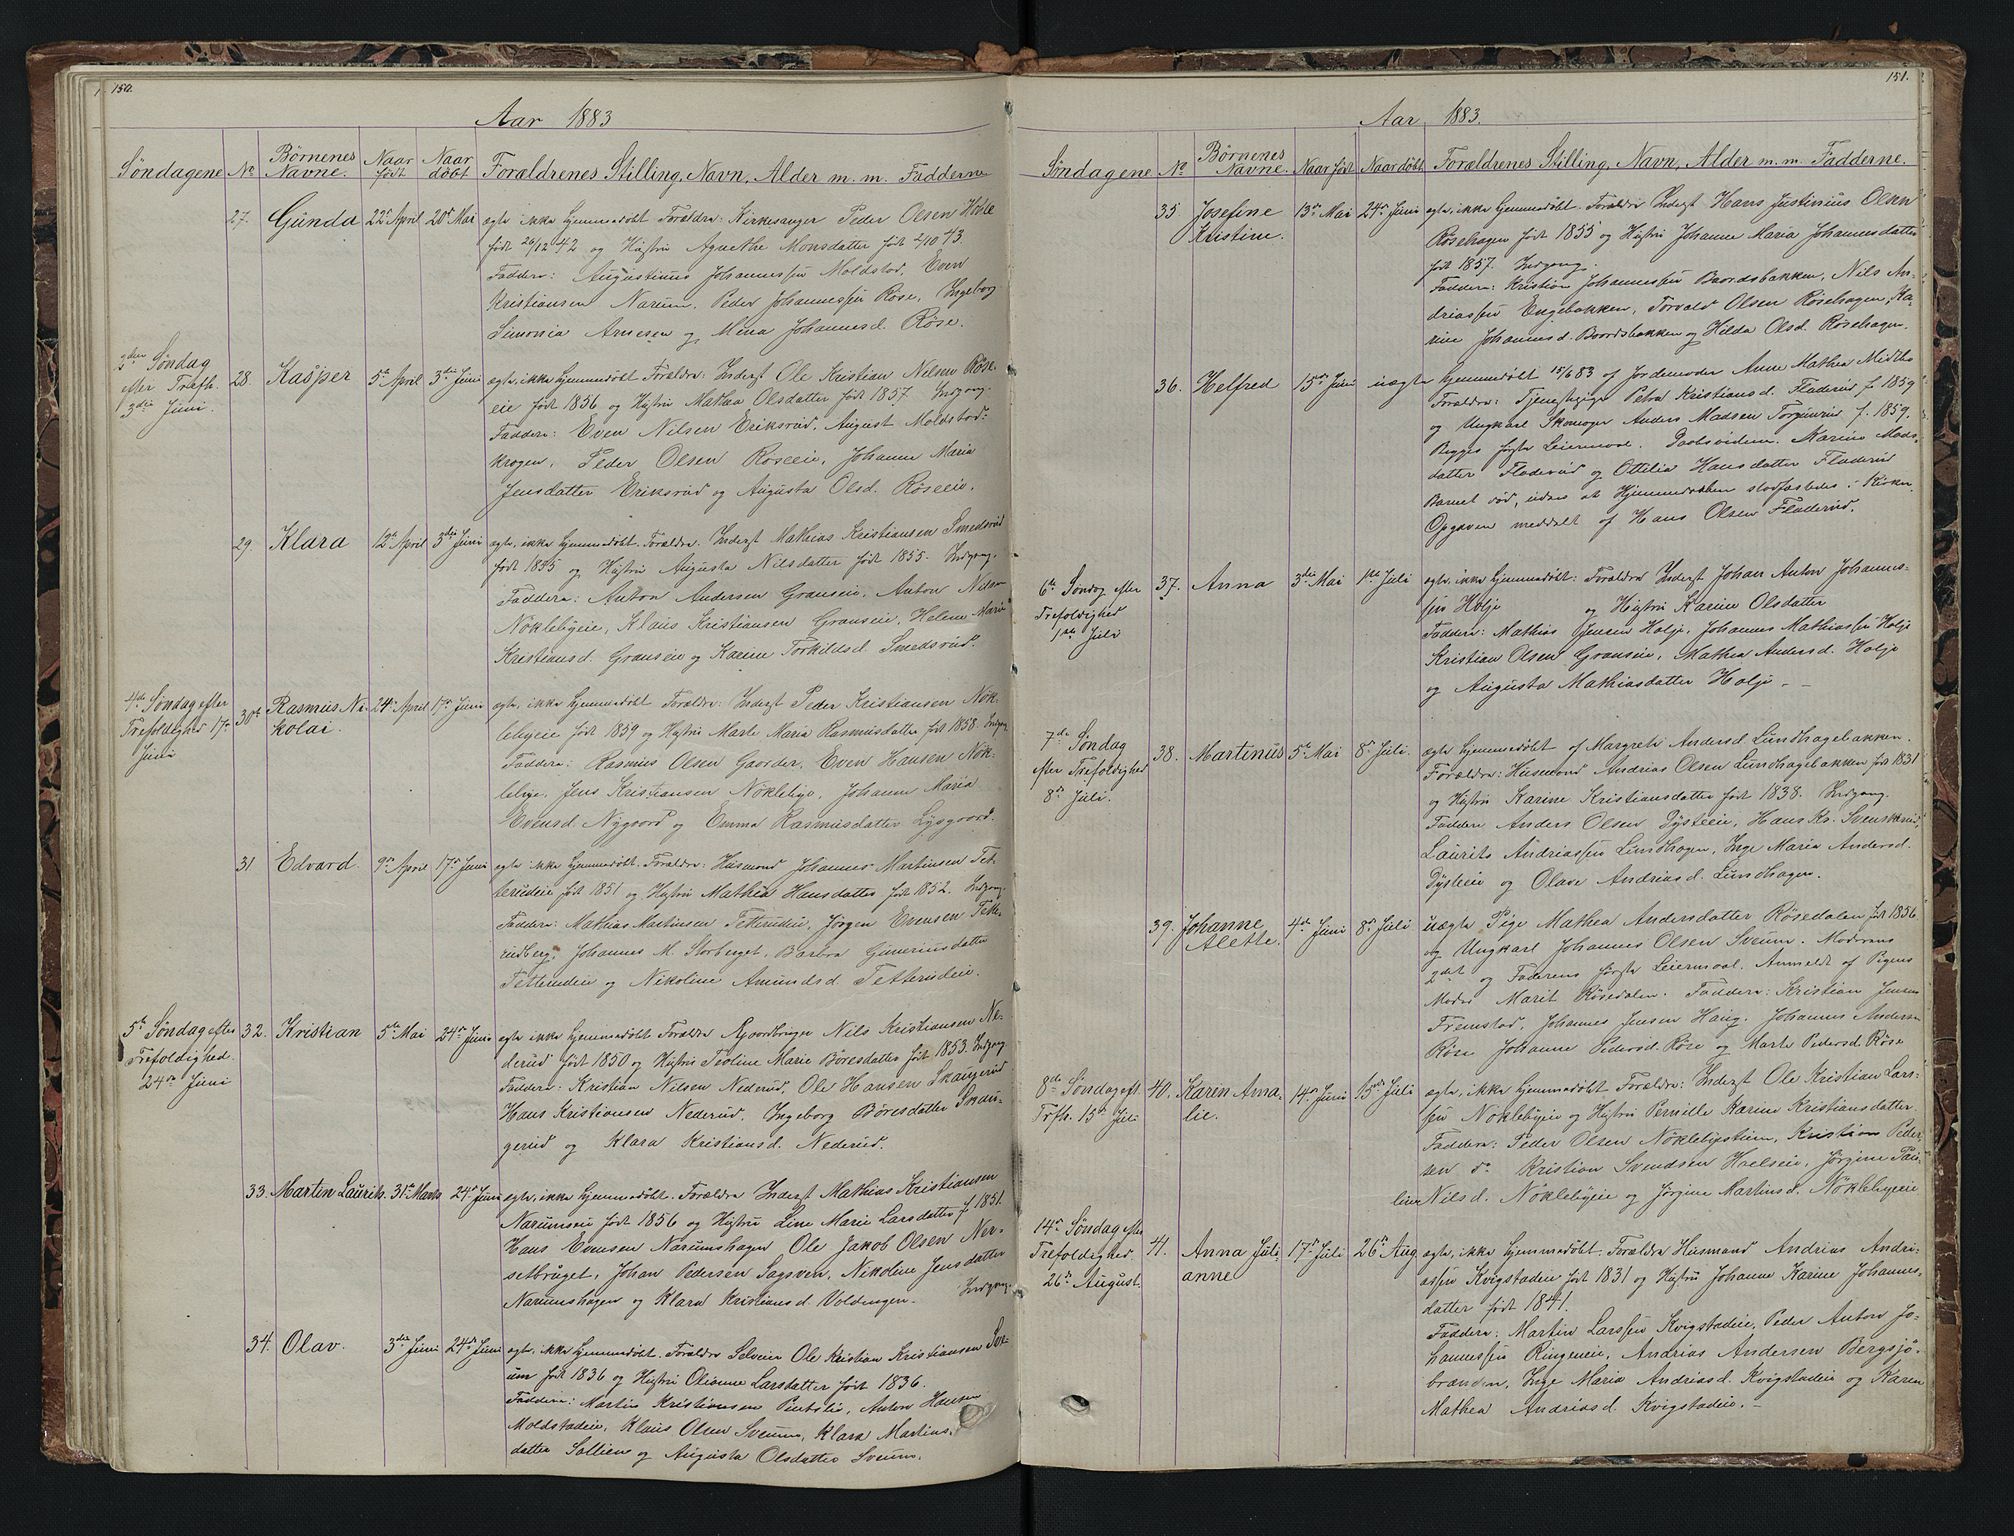 150.
Aar 1883
Søndagene No Børnenes Navne. Naar født Naar døbt Forældrenes Stilling, Navn, Alder m. m. Fadderne
27. Gunda 22de April 20de Mai ægte ikke hjemmedøbt Forældre: Kirkesanger Peder Olsen
født 20/12 42 og Hustru Agnethe Monsdatter født 2/10 43.
Faddere: Augustinus Johannessen Moldstad, Even
Kristiansen Narum, Peder Johannessen Røse, Ingeborg
Simonia Arnesen og Mina Johannesd. Røse.
Søndag
efter Trefh.
3die Juni.
28. Kasper 5te April 3die Juni ægte, ikke hjemmedøbt Forældre: Inderst Ole Kristian Nilsen Røse-
eie født 1856 og Hustru Mathea Olsdatter født 1857. Indgang.
Faddere: Even Nilsen Eriksrud, August Moldstad-
krogen, Peder Olsen Røseeie, Johanne Maria
Jensdatter Eriksrud og Augusta Olsd. Røseeie.
29. Klara 12te April 3die Juni ægte, ikke hjemmedøbt. Forældre: Inderst Mathias Kristiansen Smedsrud
født 1855 og Hustru Augusta Nilsdatter født 1855. Indgang.
Faddere: Anton Andersen Granseie, Anton Nilsen
Nøklebyeie, Klaus Kristiansen Granseie, Helene Marie
Kristiansd. Granseie og Karine Torkildsd. Smedsrud.
4de Søndag efter
Trefoldighed 17de
Juni
30te Rasmus Ni- 24de April 17de Juni ægte, ikke hjemmedøbt Forældre: Inderst Peder Kristiansen Nøk-
kolai. lebyeie født 1859 og Hustru Marte Maria Rasmusdatter født 1858. Indgang
Faddere: Rasmus Olsen Gaarder, Even Hansen Nøk-
lebye, Jens Kristiansen Nøklebye, Johanne Maria
Evensd. Nygaard og Emma Rasmusdatter Lysgaard.
31. Edvard. 9de April 17de Juni ægte ikke hjemmedøbt. Forældre: Husmand Johannes Martinsen Tet-
terudeie født 1851 og Hustru Mathea Hansdatter født 1852. Indgang
Faddere: Mathias Martinsen Tetterudeie, Jørgen Evensen Tette-
rudberg, Johannes M. Storberget, Barbra Guneriusdatter
Tetterudeie og Nikoline Amundsd. Tetterudeie.
5te Søndag efter
Trefoldighed.
24de Juni
32. Kristian 5te Mai 24de Juni ægte ikke hjemmedøbt Forældre Gaardbruger Nils Kristiansen Ne-
derud født 1850 og Hustru Teoline Marie Børesdatter født 1853. Indgang
Faddere: Kristian Nilsen Nederud, Ole Hansen Skaugerud
Hans Kristiansen Nederud, Ingeborg Børesdatter Skau-
gerud og Klara Kristiansd. Nederud.
33. Martin Laurits. 31te Marts 24de Juni ægte, ikke hjemmedøbt. Forældre Inderst Mathias Kristiansen
Narumseie født 1856 og Hustru Line Marie Larsdatter f. 1851.
Hans Evensen Narumshagen Ole Jakob Olsen Ner-
setbruget, Johan Pedersen Sagsven, Nikoline Jensdatter
Narumshagen og Klara Kristiansd. Voldengen. Indgang.
34. Olav. 3die Juni 24de Juni ægte, ikke hjemmedøbt. Forældre Selveier Ole Kristian Kristiansen Sve-
um født 1836 og Hustru Olianne Larsdatter født 1836.
Faddere: Martin Kristiansen, Anton Hansen
Moldstadeie, Klaus Olsen Sveum, Klara Martins-
datter Sollien og Augusta Olsdatter Sveum.
151.
Aar 1883.
Søndagene No Børnenes Navne. Naar født Naar døbt Forældrenes Stilling, Navn, Alder m. m. Fadderne.
35. Josefine 13de Mai 24de Juni ægte, ikke hjemmedøbt. Forældre Inderst Hans Justinius Olsen
Kristine. Røsehagen født 1855 og Hustru Johanne Maria Johannesdatter
født 1857. Indgang.
Faddere: Kristian Johannessen Baardsbakken, Nils An-
driassen Engebakken, Torvald Olsen Røsehagen, Ka-
rine Johannesd. Baardsbakken og Hilda Olsd. Røsehagen.
36. Helfred 15de Juni uægte hjemmedøbt 15/6 83 af Jordemoder Anne Mathea
Forældre: Tjenestepige Petra Kristiansd. Fladerud f. 1859
og Ungkarl Skomager Anders Madsen Torgunrud f. 1859.
Begges første Leiermaal. Daabsvidner. Karine Mads-
datter Fladerud og Ottilia Hansdatter Fladerud
Barnet død, uden at Hjemmedaaben stadfæstedes i Kirken.
Opgaven meddelt af Hans Olsen Fladerud.
6te Søndag efter
Trefoldighed
1ste Juli
37. Anna 3die Mai 1ste Juli ægte, ikke hjemmedøbt: Forældre Inderst Johan Anton Johannes-
sen Holje og Hustru Karine Olsdatter
Faddere: Mathias Jensen Holje, Johannes Mathiassen Holje
Kristian Olsen Granseie, Mathea Andersd. Holje
og Augusta Mathiasdatter Holje. –
7de Søndag
efter Trefoldighed
8de Juli.
38. Martinus 5te Mai 8de Juli. ægte hjemmedøbt af Margrete Andersd Lundhagebakken.
Forældre: Husmand Andrias Olsen Lundhagebakken født 1831
og Hustru Karine Kristiansdatter født 1838. Indgang.
Faddere Anders Olsen Dysteeie, Hans Kr. Svenskerud,
Laurits Andriassen Lundhagen, Inge Maria Andersd.
Dysteeie og Olave Andriasd. Lundhagen.
39. Johanne 4de Juni 8de Juli uægte Pige Mathea Andersdatter Røsedalen født 1856
Alette. og Ungkarl Johannes Olsen Sveum. Moderens
2det og Faderens første Leiermaal. Anmeldt af Pigens
Moder Marit Røsedalen. Faddere: Kristian Jensen
Fremstad, Johannes Jensen Haug, Johannes Andersen
Røse Johanne Pedersd. Røse og Marte Pedersd Røse
8de Søndag eft.
Trfh. 15de Juli
40. Karen Ama- 14de Juni 15de Juli ægte, ikke hjemmedøbt Forældre: Inderst Ole Kristian Lars-
lie. sen Nøklebyeie og Hustru Pernille Karine Kristiansdatter.
Faddere: Peder Olsen Nøklebystuen, Kristian Peder-
sen do Kristian Svendsen Hoelseie, Jørgine Pau-
line Nilsd. Nøklebyeie og Jørgine Martinsd. Nøklebyeie
14de Søndag efter
Trefoldighed.
26de August.
41. Anna Juli- 17de Juli 26de Aug ægte, ikke hjemmedøbt. Forældre Husmand Andrias Andri-
anne assen Kvigstadeie født 1831 og Hustru Johanne Karine Johannes-
datter født 1841.
Faddere: Martin Larssen Kvigstadeie, Peder Anton Jo-
hannessen Ringeneie, Andrias Andersen Bergsjø-
branden, Inge Maria Andriasd. Kvigstadeie og Karen
Mathea Andriasd. Kvigstadeie. –